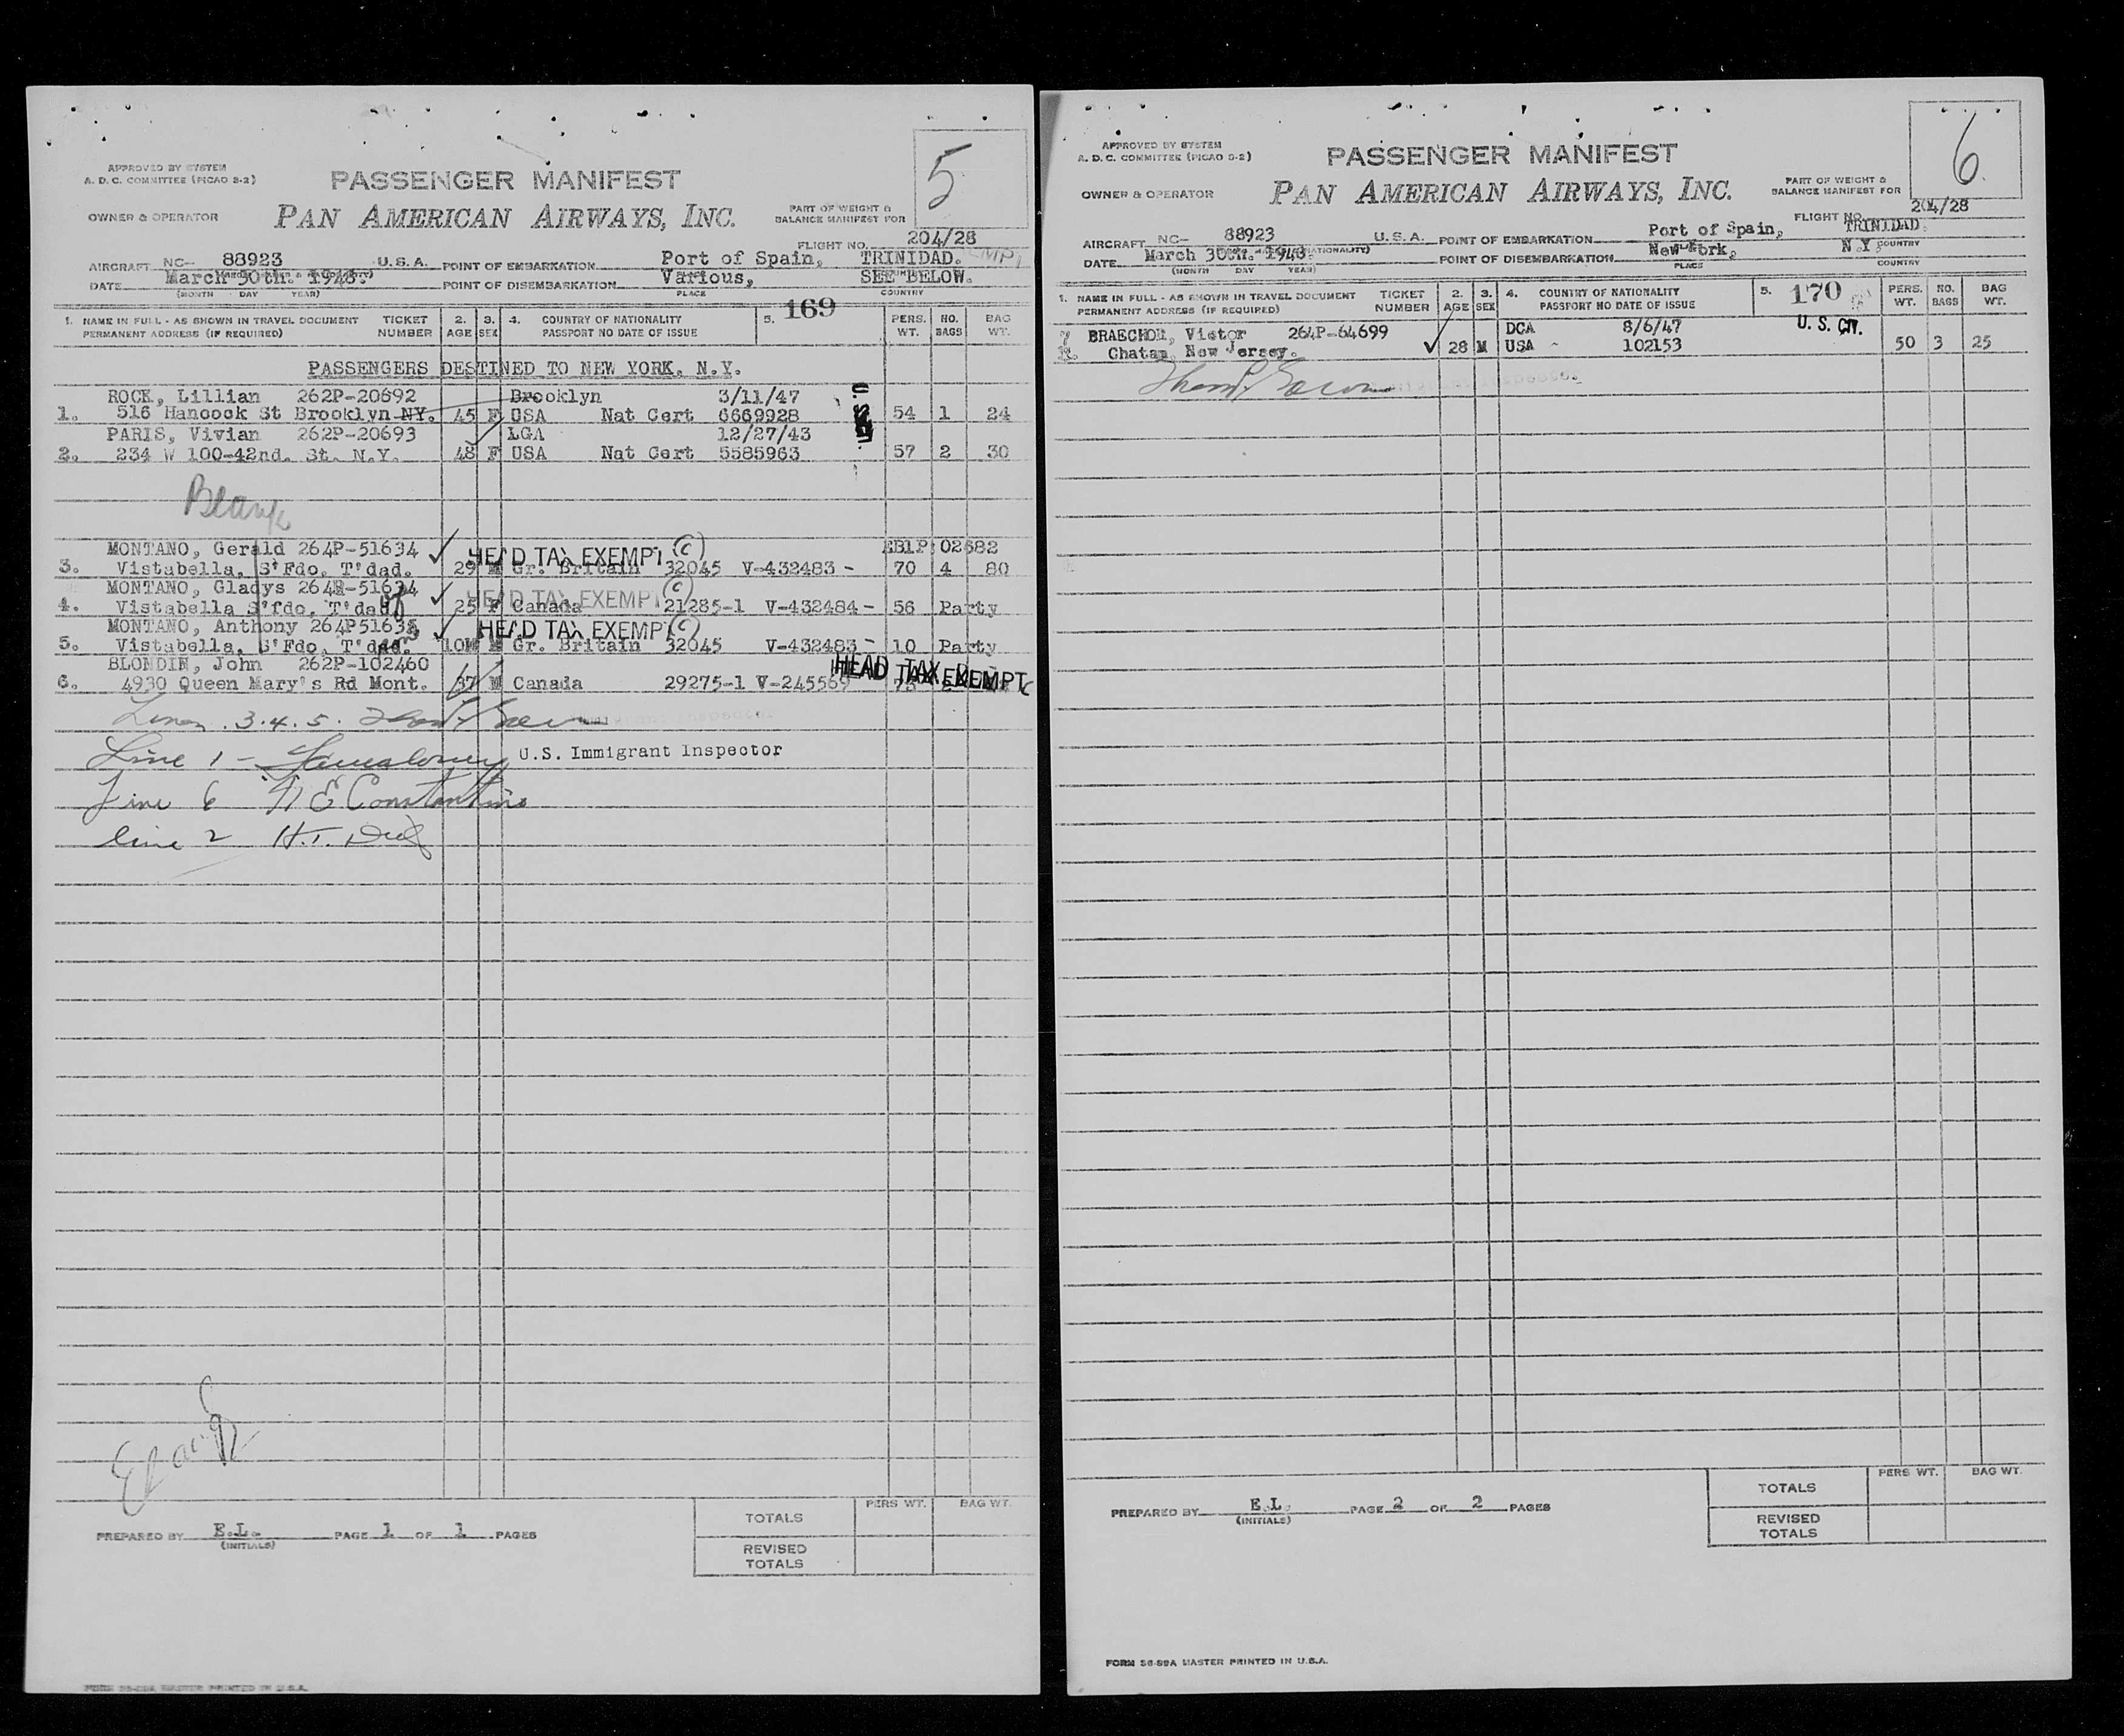 5
APPROVED BY SYSTEM
A. D. C. COMMITTEE (PICAO S-2)
PASSENGER MANIFEST
OWNER & OPERATOR PAN AMERICAN AIRWAYS, INC.
PART OF WEIGHT &
BALANCE MANIFEST FOR
FLIGHT NO. 204/28
AIRCRAFT NC- 88923 U.S.A. POINT OF EMBARKATION Port of Spain, TRINIDAD.
DATE March 30th. 1948. POINT OF DISEMBARKATION Various, SEE BELOW.
(MONTH DAY YEAR) PLACE COUNTRY
1. NAME IN FULL - AS SHOWN IN TRAVEL DOCUMENT TICKET 2. 3. 4. COUNTRY OF NATIONALITY 5. 169 PERS. NO. BAG
PERMANENT ADDRESS (IF REQUIRED) NUMBER AGE SEX PASSPORT NO DATE OF ISSUE WT. BAGS WT.
PASSENGERS DESTINED TO NEW YORK, N.Y.
ROCK, Lillian 262P-20692 Brooklyn 3/11/47
1. 516 Hancock St Brooklyn NY. 45 F USA Nat Cert 6669928 54 1 24
PARIS, Vivian 262P-20693 LGA 12/27/43
2. 234 W 100-42nd. St. N.Y. 48 F USA Nat Cert 5585963 57 2 30
Blank
MONTANO, Gerald 264P-51634 HEAD TAX EXEMPT (C) EBLP:02682
3. Vistabella, S'Fdo, T'dad. 29 M Gr. Britain 32045 V-432483 - 70 4 80
MONTANO, Gladys 264P-51634 HEAD TAX EXEMPT (C)
4. Vistabella S'fdo, T'dad 25 F Canada 21285-1 V-432484 - 56 Party
MONTANO, Anthony 264P51635 HEAD TAX EXEMPT (C)
5. Vistabella, S'Fdo, T'dad. 10M M Gr. Britain 32045 V-432483 - 10 Party
BLONDIN, John 262P-102460 HEAD TAX EXEMPT
6. 4930 Queen Mary's Rd Mont. 37 M Canada 29275-1 V-245569
Lines 3.4.5.
Line 1 - U.S. Immigrant Inspector
Line 6 N E Constantino
line 2 H.T.
PREPARED BY E.L. PAGE 1 OF 1 PAGES
(INITIALS)
PERS WT. BAG WT.
TOTALS
REVISED
TOTALS
FORM 36-89A MASTER PRINTED IN U.S.A.
6
APPROVED BY SYSTEM
A. D. C. COMMITTEE (PICAO S-2)
PASSENGER MANIFEST
OWNER & OPERATOR PAN AMERICAN AIRWAYS, INC.
PART OF WEIGHT &
BALANCE MANIFEST FOR
FLIGHT NO. 204/28
AIRCRAFT NC- 88923 U.S.A. POINT OF EMBARKATION Port of Spain, TRINIDAD.
DATE March 30th. 1948. POINT OF DISEMBARKATION New York, N.Y.
(MONTH DAY YEAR) PLACE COUNTRY
1. NAME IN FULL - AS SHOWN IN TRAVEL DOCUMENT TICKET 2. 3. 4. COUNTRY OF NATIONALITY 5. 170 PERS. NO. BAG
PERMANENT ADDRESS (IF REQUIRED) NUMBER AGE SEX PASSPORT NO DATE OF ISSUE WT. BAGS WT.
7 BRAECHON, Victor 264P-64699 DCA 8/6/47 U.S. CIT.
Chatam, New Jersey. 28 M USA - 102153 50 3 25
PREPARED BY E.L. PAGE 2 OF 2 PAGES
(INITIALS)
PERS WT. BAG WT.
TOTALS
REVISED
TOTALS
FORM 36-89A MASTER PRINTED IN U.S.A.